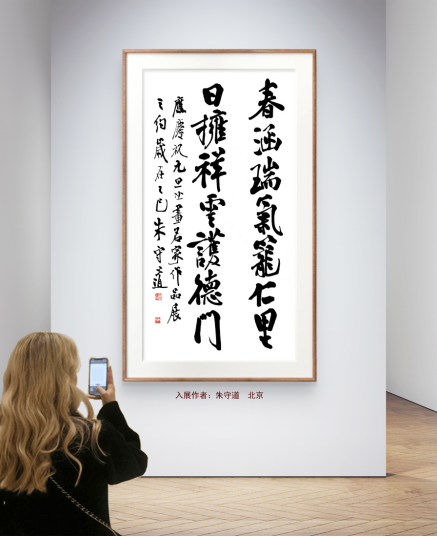 春涵瑞氣籠仁里
日擁祥雲護德門
應慶祝元旦书畫名家作品展
之約歲在乙巳朱守道
入展作者：朱守道　北京